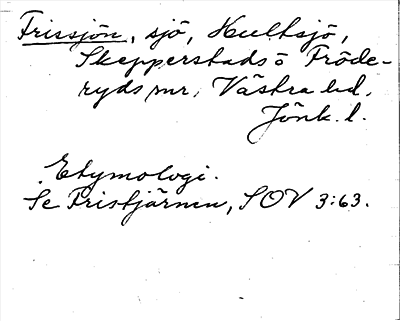 Frissjön, sjö, Hultsjö,
Skepperstads o Fröde-
ryds snr, Västra hd,
Jönk. l.
Etymologi.
Se Fristjärnen, SOV 3:63.